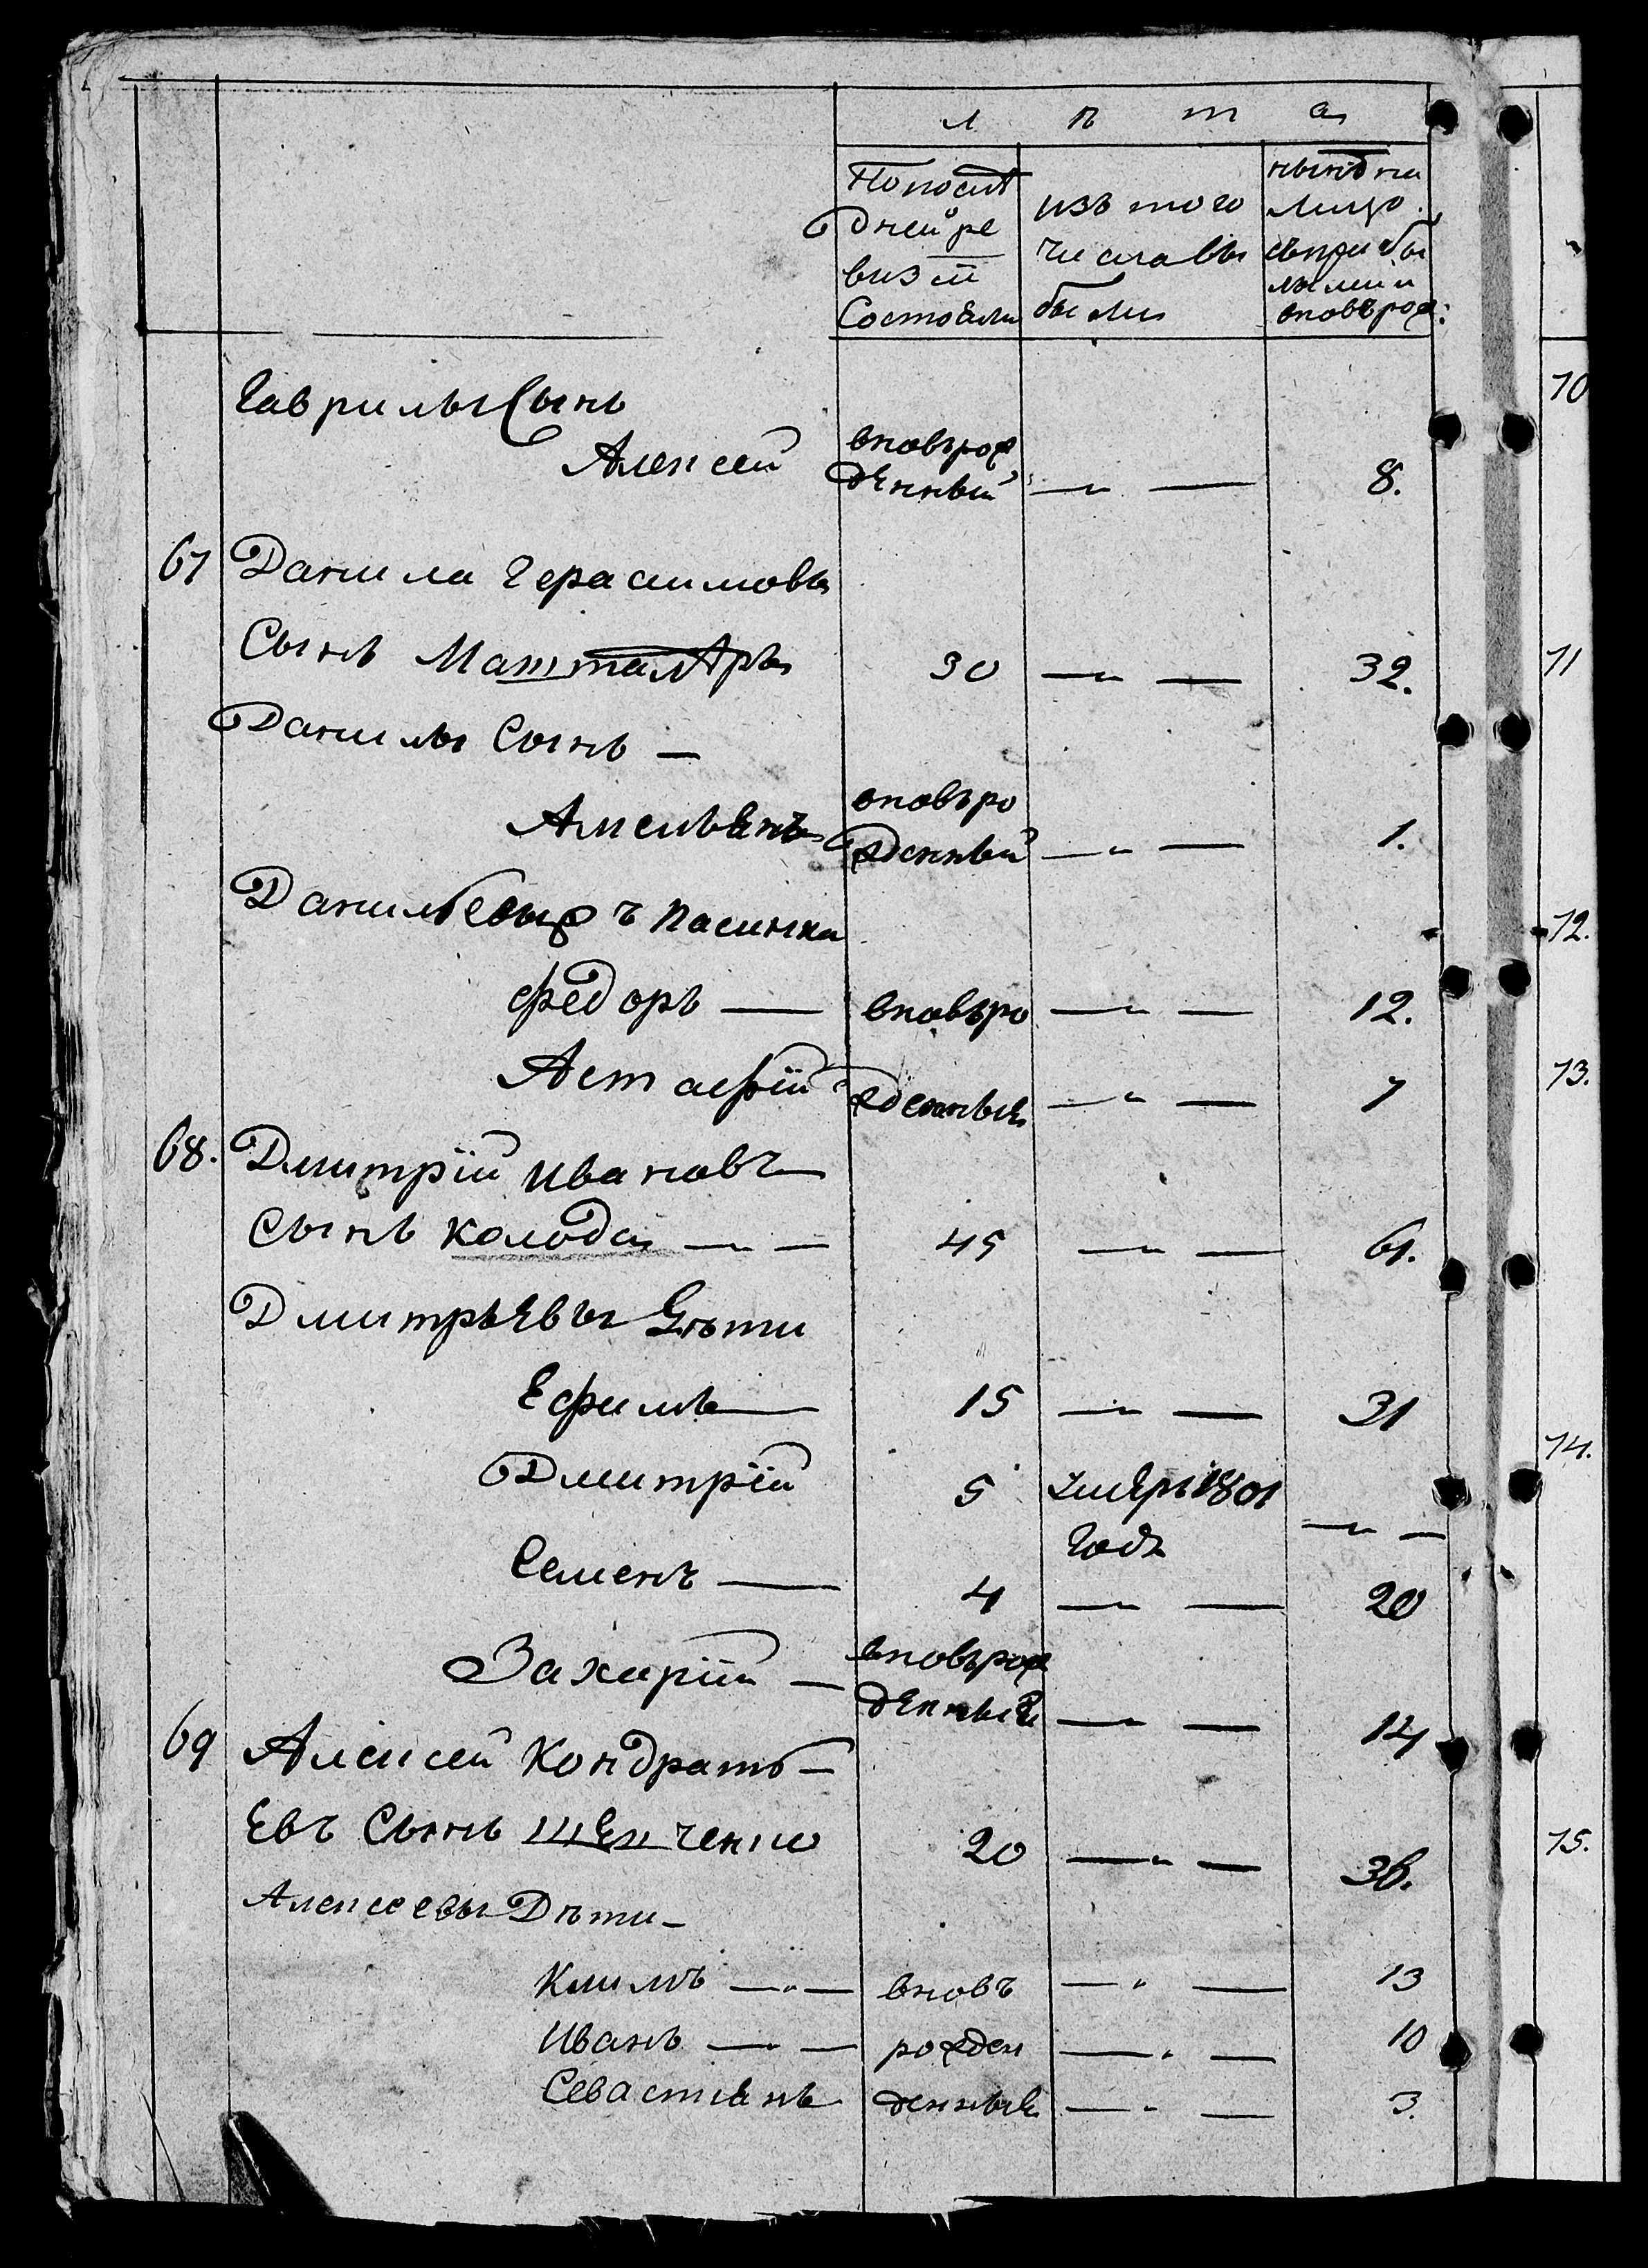 лѣта
Попослѣ
дней ре
визіи
Состояли
изъ того
числа вы
были
нынѣ на
лицо
съприбы
лыми и
вновърож:
Гаврилы Сынъ
Алексей вноверож
денный — 8.
67 Данила Герасимовъ
Сынъ 30 — 32.
Данилы Сынъ —
Амельянъ вновъро
жденный — 1.
Данил пасинка
Федоръ — вновъро — 12.
Астафій жденные — 7
68. Дмитрій Ивановъ
Сынъ Колода — 45 — 61.
Дмитрьевы Дѣти
Ефимъ — 15 — 31
Дмитрій 5 умеръ 1801
годъ —
Семенъ — 4 — 20
Захарій — вновърож
денный — 14
69 Алексей Кондрать-
Евъ Сынъ 20 — 36.
Алексеевы Дѣти —
Климъ — вновъ — 13
Иванъ — рожден — 10
Севастіянъ денные — 3.
70
71
72.
73.
74.
75.